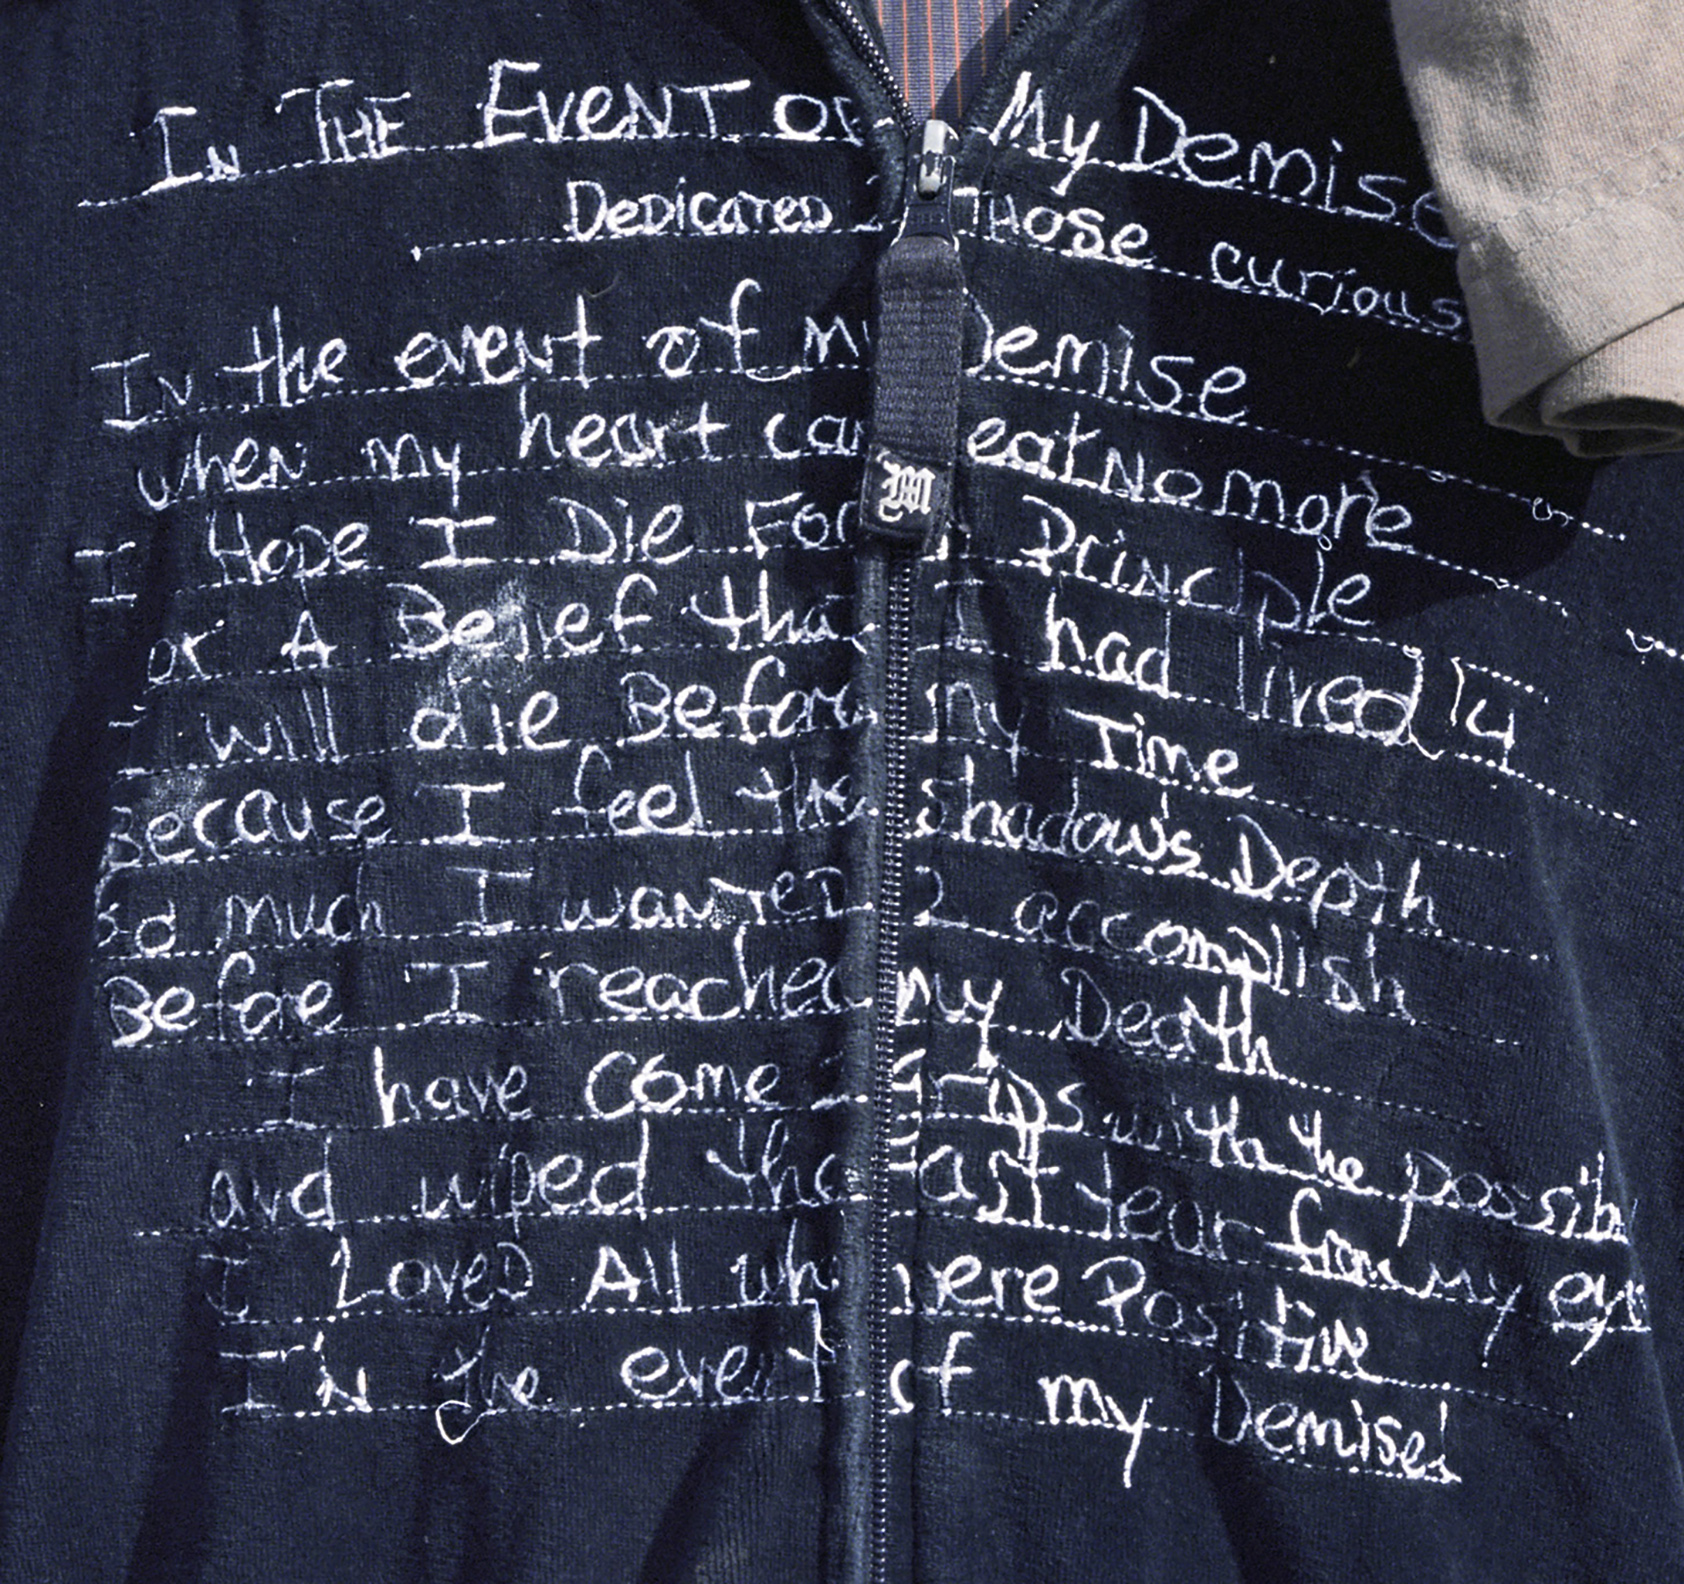 In THE EVENT OF My Demise
DeDicateD 2 THose curious
In the event of my Demise
when my heart can Beat No more
I Hope I Die For A Principle
or A Belief that I had lived 4
I will die Before my Time
Because I feel the shadow's Depth
So much I wanteD 2 accomplish
Before I reached my Death
I have Come 2 Grips with the possibi
and wiped the last tear from My eyes
I LoveD All who were Positive
In the event of my Demise!